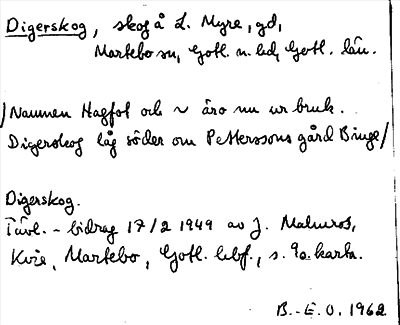 Digerskog, skog å L. Myre, gd,
Martebo sn, Gotl. n. hd, Gotl. län.
/Namnen Hagfot och ~ äro nu ur bruk.
Digerskog låg söder om Petterssons gård Binge/
Digerskog.
Tävl. - bidrag 17/2 1949 av J. Malmros,
Kvie, Martebo, Gotl. hbf., s. 9a. karta.
B.-E. O. 1962